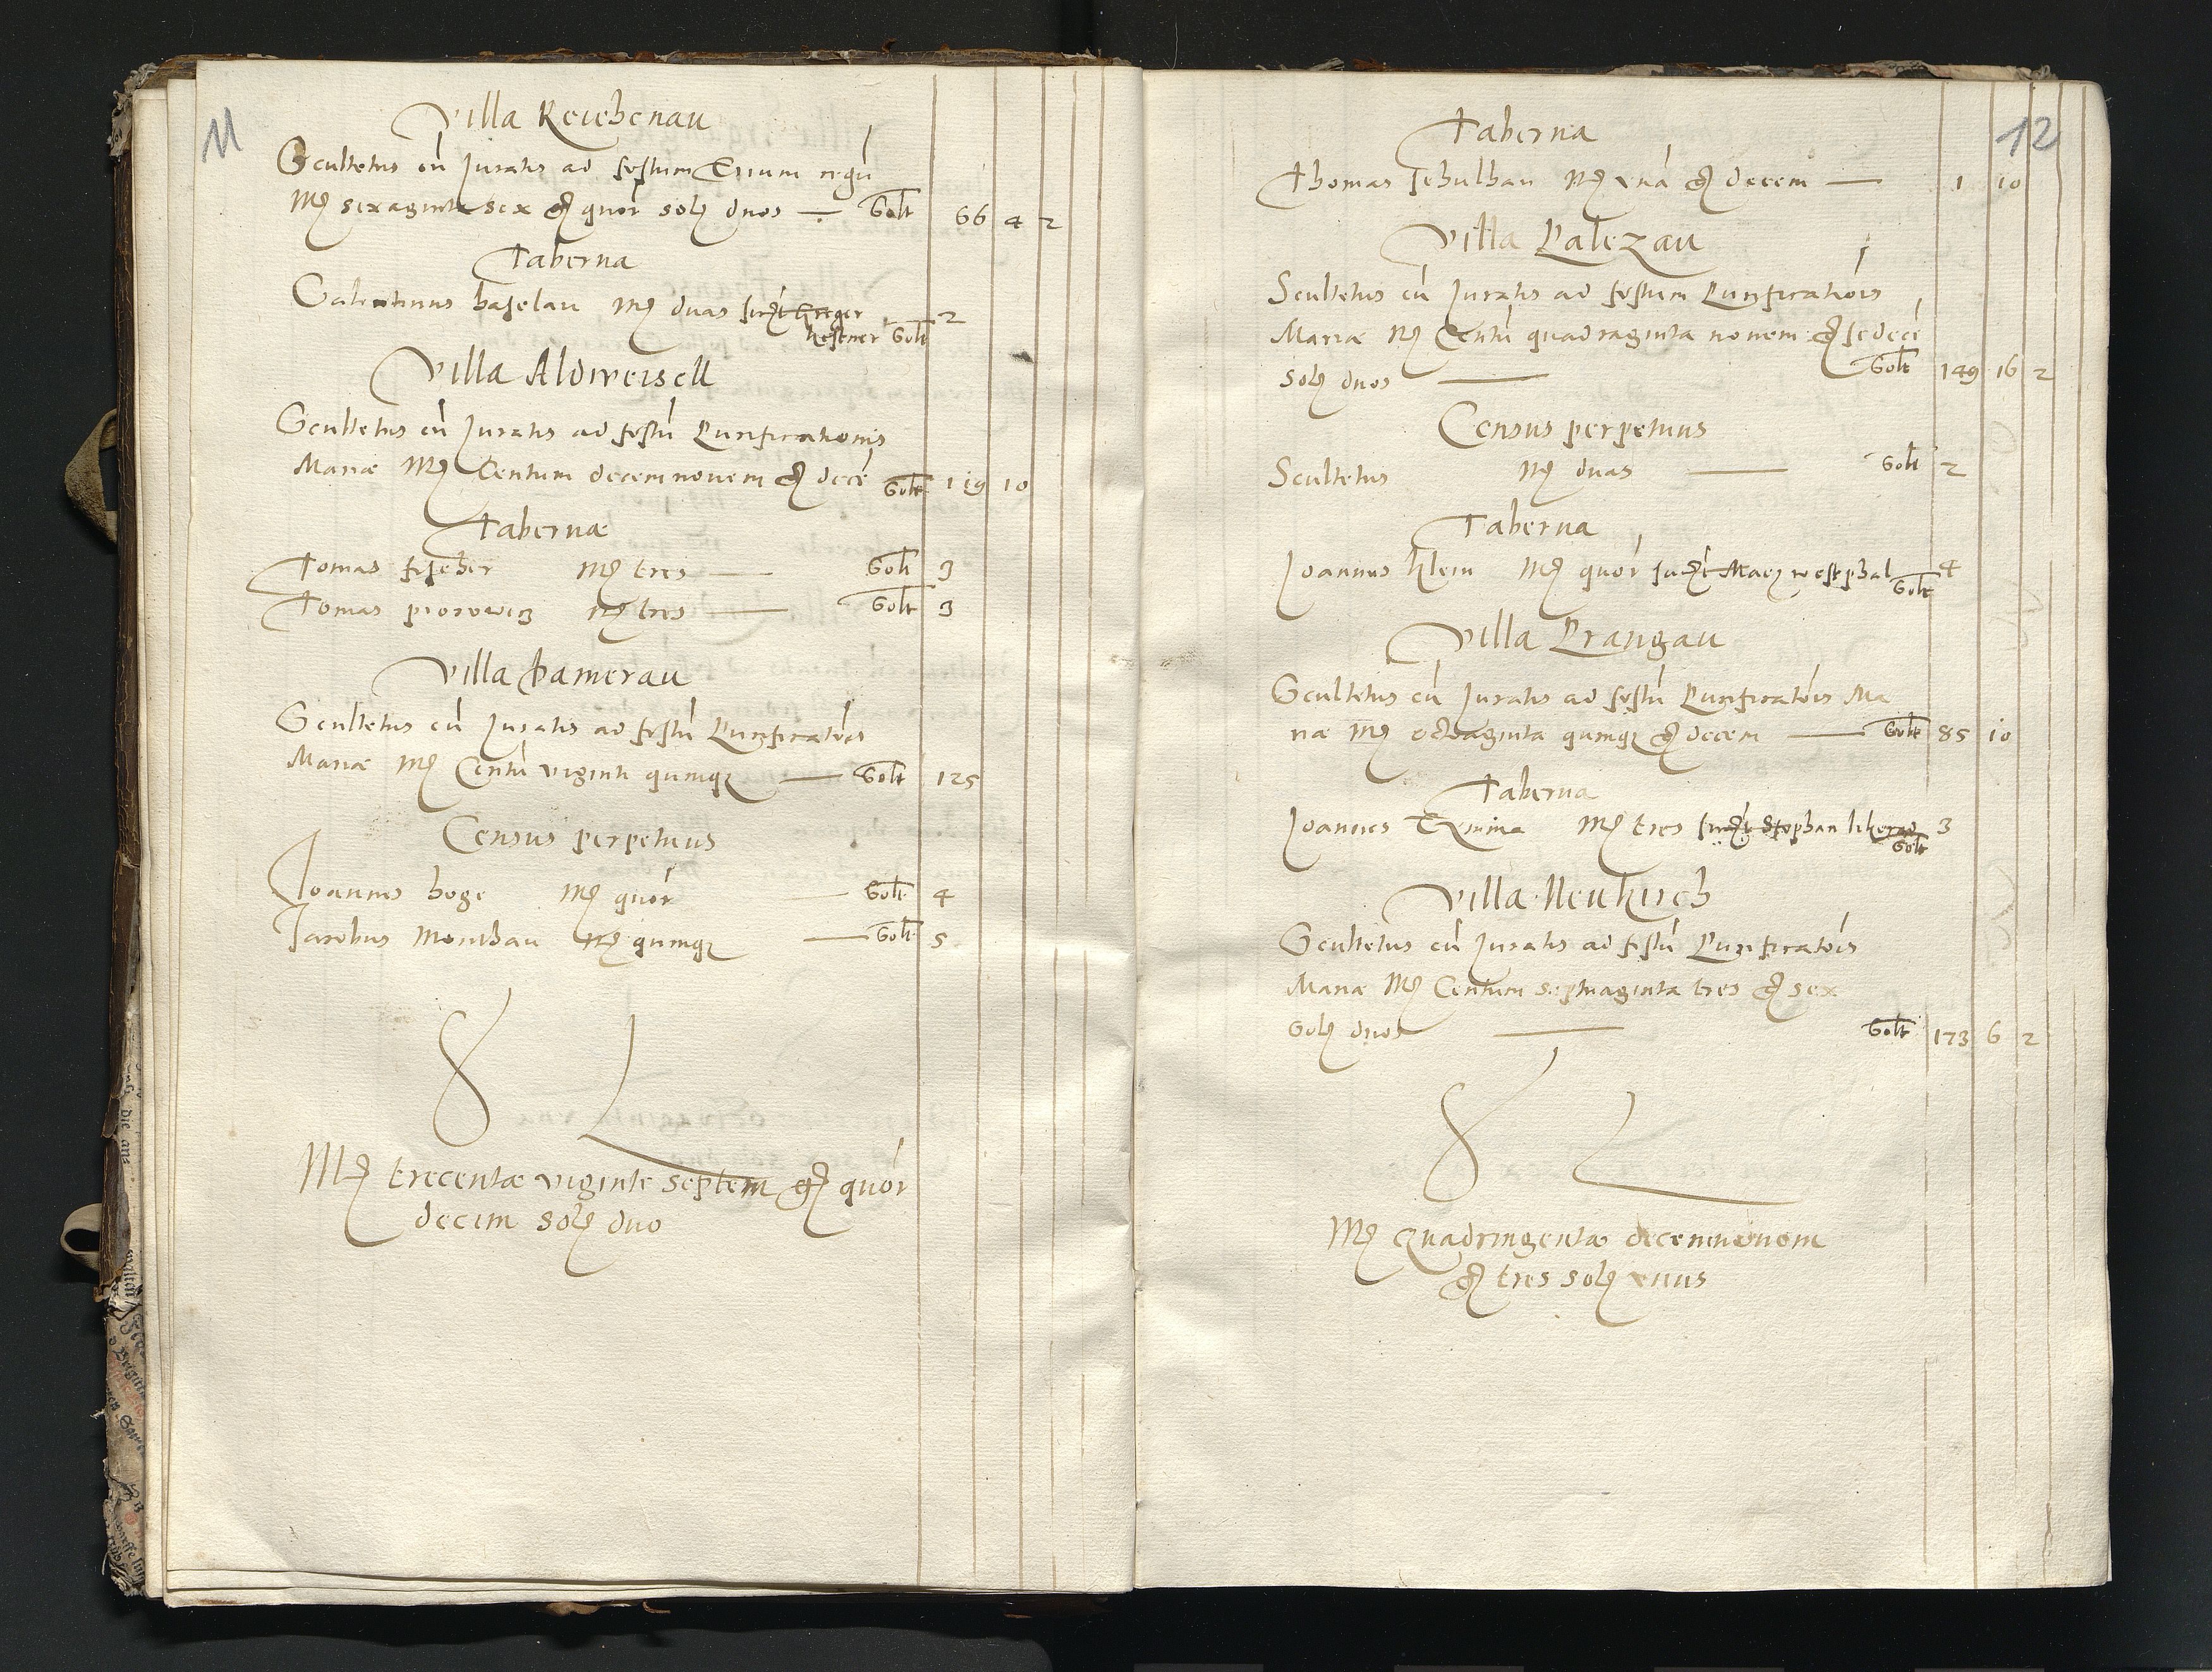 11
Villa Reichenau
Scultetus cū Juratis ad festum Trium regū
Mꝝ sexaginta sex gꝝ quōr solꝝ duos — Solt 66 4 2
Taberna
Valentinus baselau Mꝝ duas 2
kestner Solt
Villa Aldweisell
Scultetus cū Juratis ad festū Purificationis
Mariæ Mꝝ Centum decemnovem gꝝ decē Solt 119 10
Tabernæ
Tomas fischer Mꝝ tres — Solt 3
Tomas piorowig Mꝝ tres — Solt 3
Villa Damerau
Scultetus cū Juratis ad festū Purificatōis
Mariæ Mꝝ Centū viginti quinqꝫ — Solt 125
Census perpetuus
Joannes hoge Mꝝ quōr — Solt 4
Jacobus Monthau Mꝝ quinqꝫ — Solt 5
S L
Mꝝ trecentæ viginte septem gꝝ quōr
decim solꝝ duo
12
Taberna
Thomas schulhau Mꝝ unā gꝝ decem — 1 10
Villa Palczau
Scultetus cū Juratis ad festum Purificatiōis
Mariæ Mꝝ Centū quadraginta novem gꝝ sedecī
solꝝ duos — Solt 149 16 2
Census perpetuus
Scultetus Mꝝ duas — Solt 2
Taberna
Joannes klein Mꝝ quōr westphal Solt 4
Villa Prangau
Scultetus cū Juratis ad festū Purificatōis Ma
riæ Mꝝ octuaginta quinqꝫ gꝝ decem — Solt 85 10
Taberna
Joannes Mꝝ tres Stephan Solt 3
Villa Neukirch
Scultetus cū Juratis ad festū Purificatōis
Mariæ Mꝝ Centum septuaginta tres gꝝ sex
Solꝝ duos — Solt 173 6 2
S L
Mꝝ quadringentæ decemnovem
gꝝ tres solꝝ unus